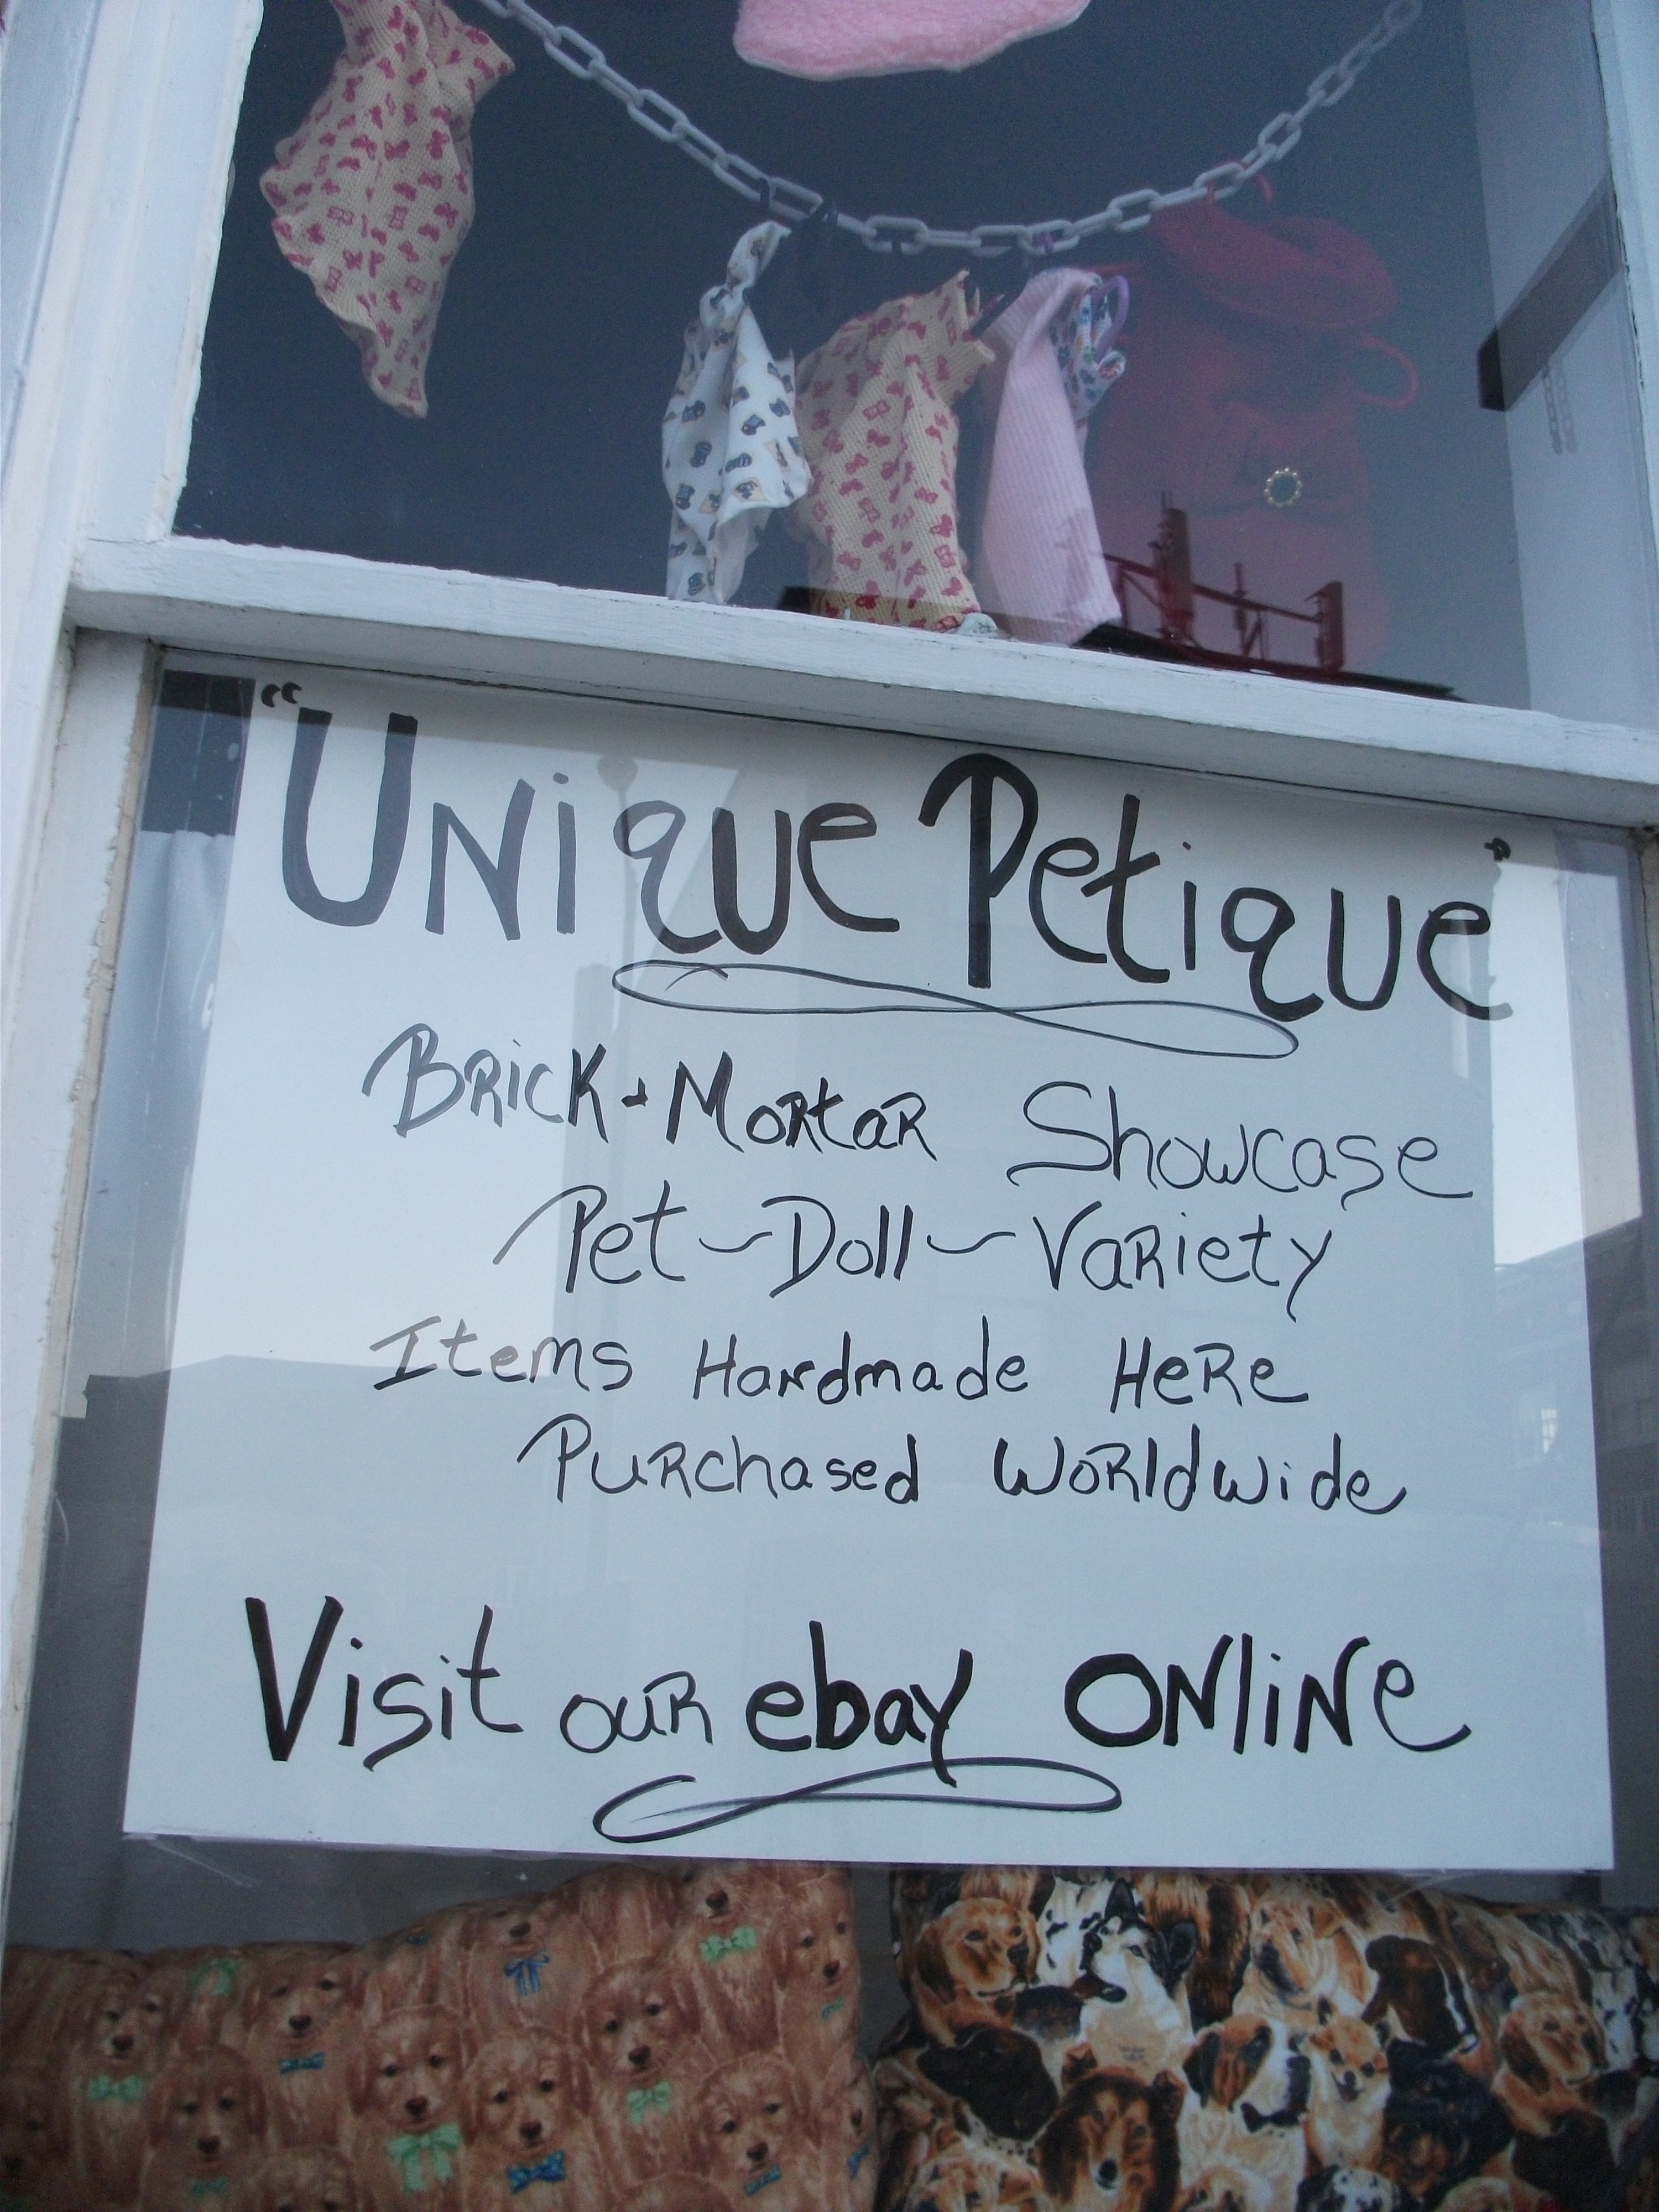 “Unique Petique”
Brick + Mortar Showcase
Pet ~ Doll ~ Variety
Items Handmade Here
Purchased Worldwide
Visit our ebay online